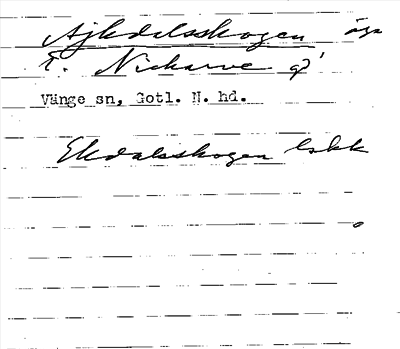 Ajkdalsskogen äga
t. Nickarve gd
Vänge sn, Gotl. N. hd.
Ekdalsskogen lskk